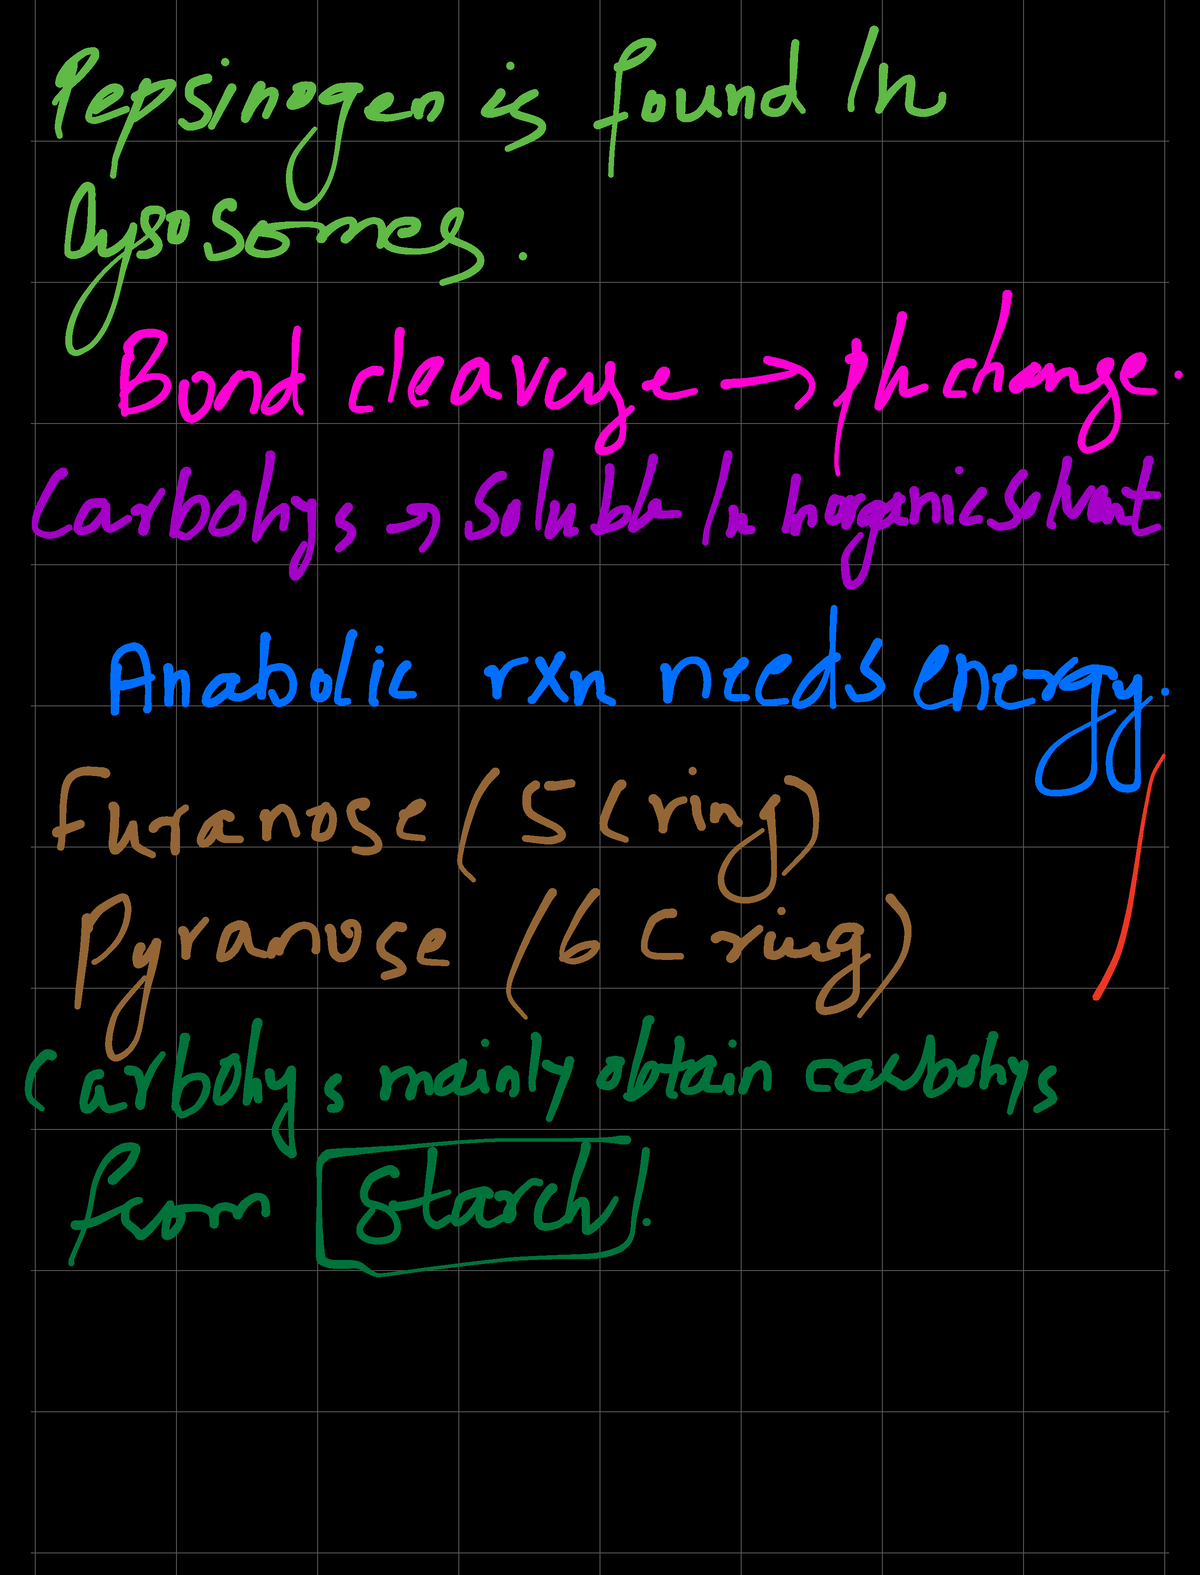 Pepsinogen is found In
Lysosomes.
Bond cleavage → ph change.
Carbohys → Soluble In Inorganic Solvent
Anabolic rxn needs energy.
Furanose (5 C ring)
Pyranose (6 C ring)
Carbohys mainly obtain carbohys
from Starch.